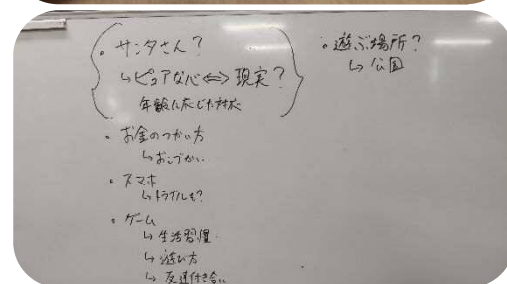 ・サンタさん?
↳ピュアな心⇔現実?
年齢に応じた対応
・お金のつかい方
↳おこづかい
・スマホ
↳トラブルも?
・ゲーム
↳生活習慣
↳遊び方
↳友達付き合い
・遊ぶ場所?
↳公園